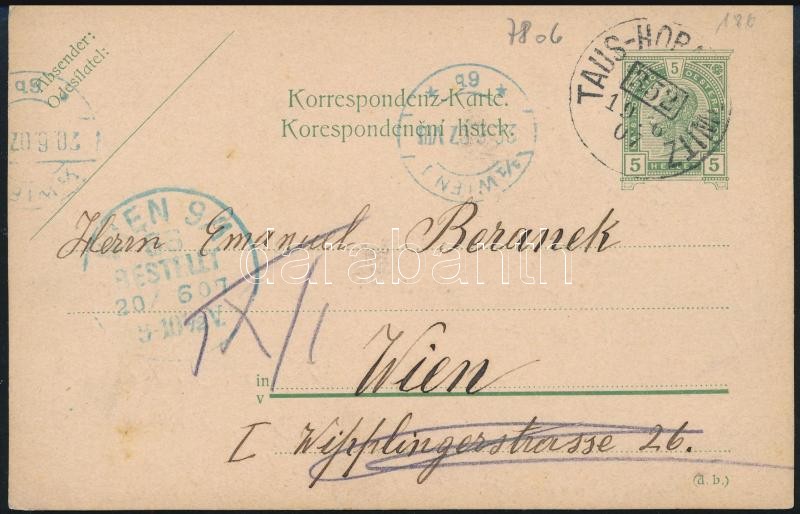 7806
186
Absender:
Odesílatel:
Korrespondenz-Karte.
Korespondenční lístek.
TAUS-HOR
552
19 6
07
5
5 HELLER 5
20.6.07
WIEN 1
BESTELLT
20/ 6 07
9-10½V.
Herrn Emanuel Beranek
IX/1
darabanth
in
v
Wien
I Wipplingerstrasse 26.
(d. b.)